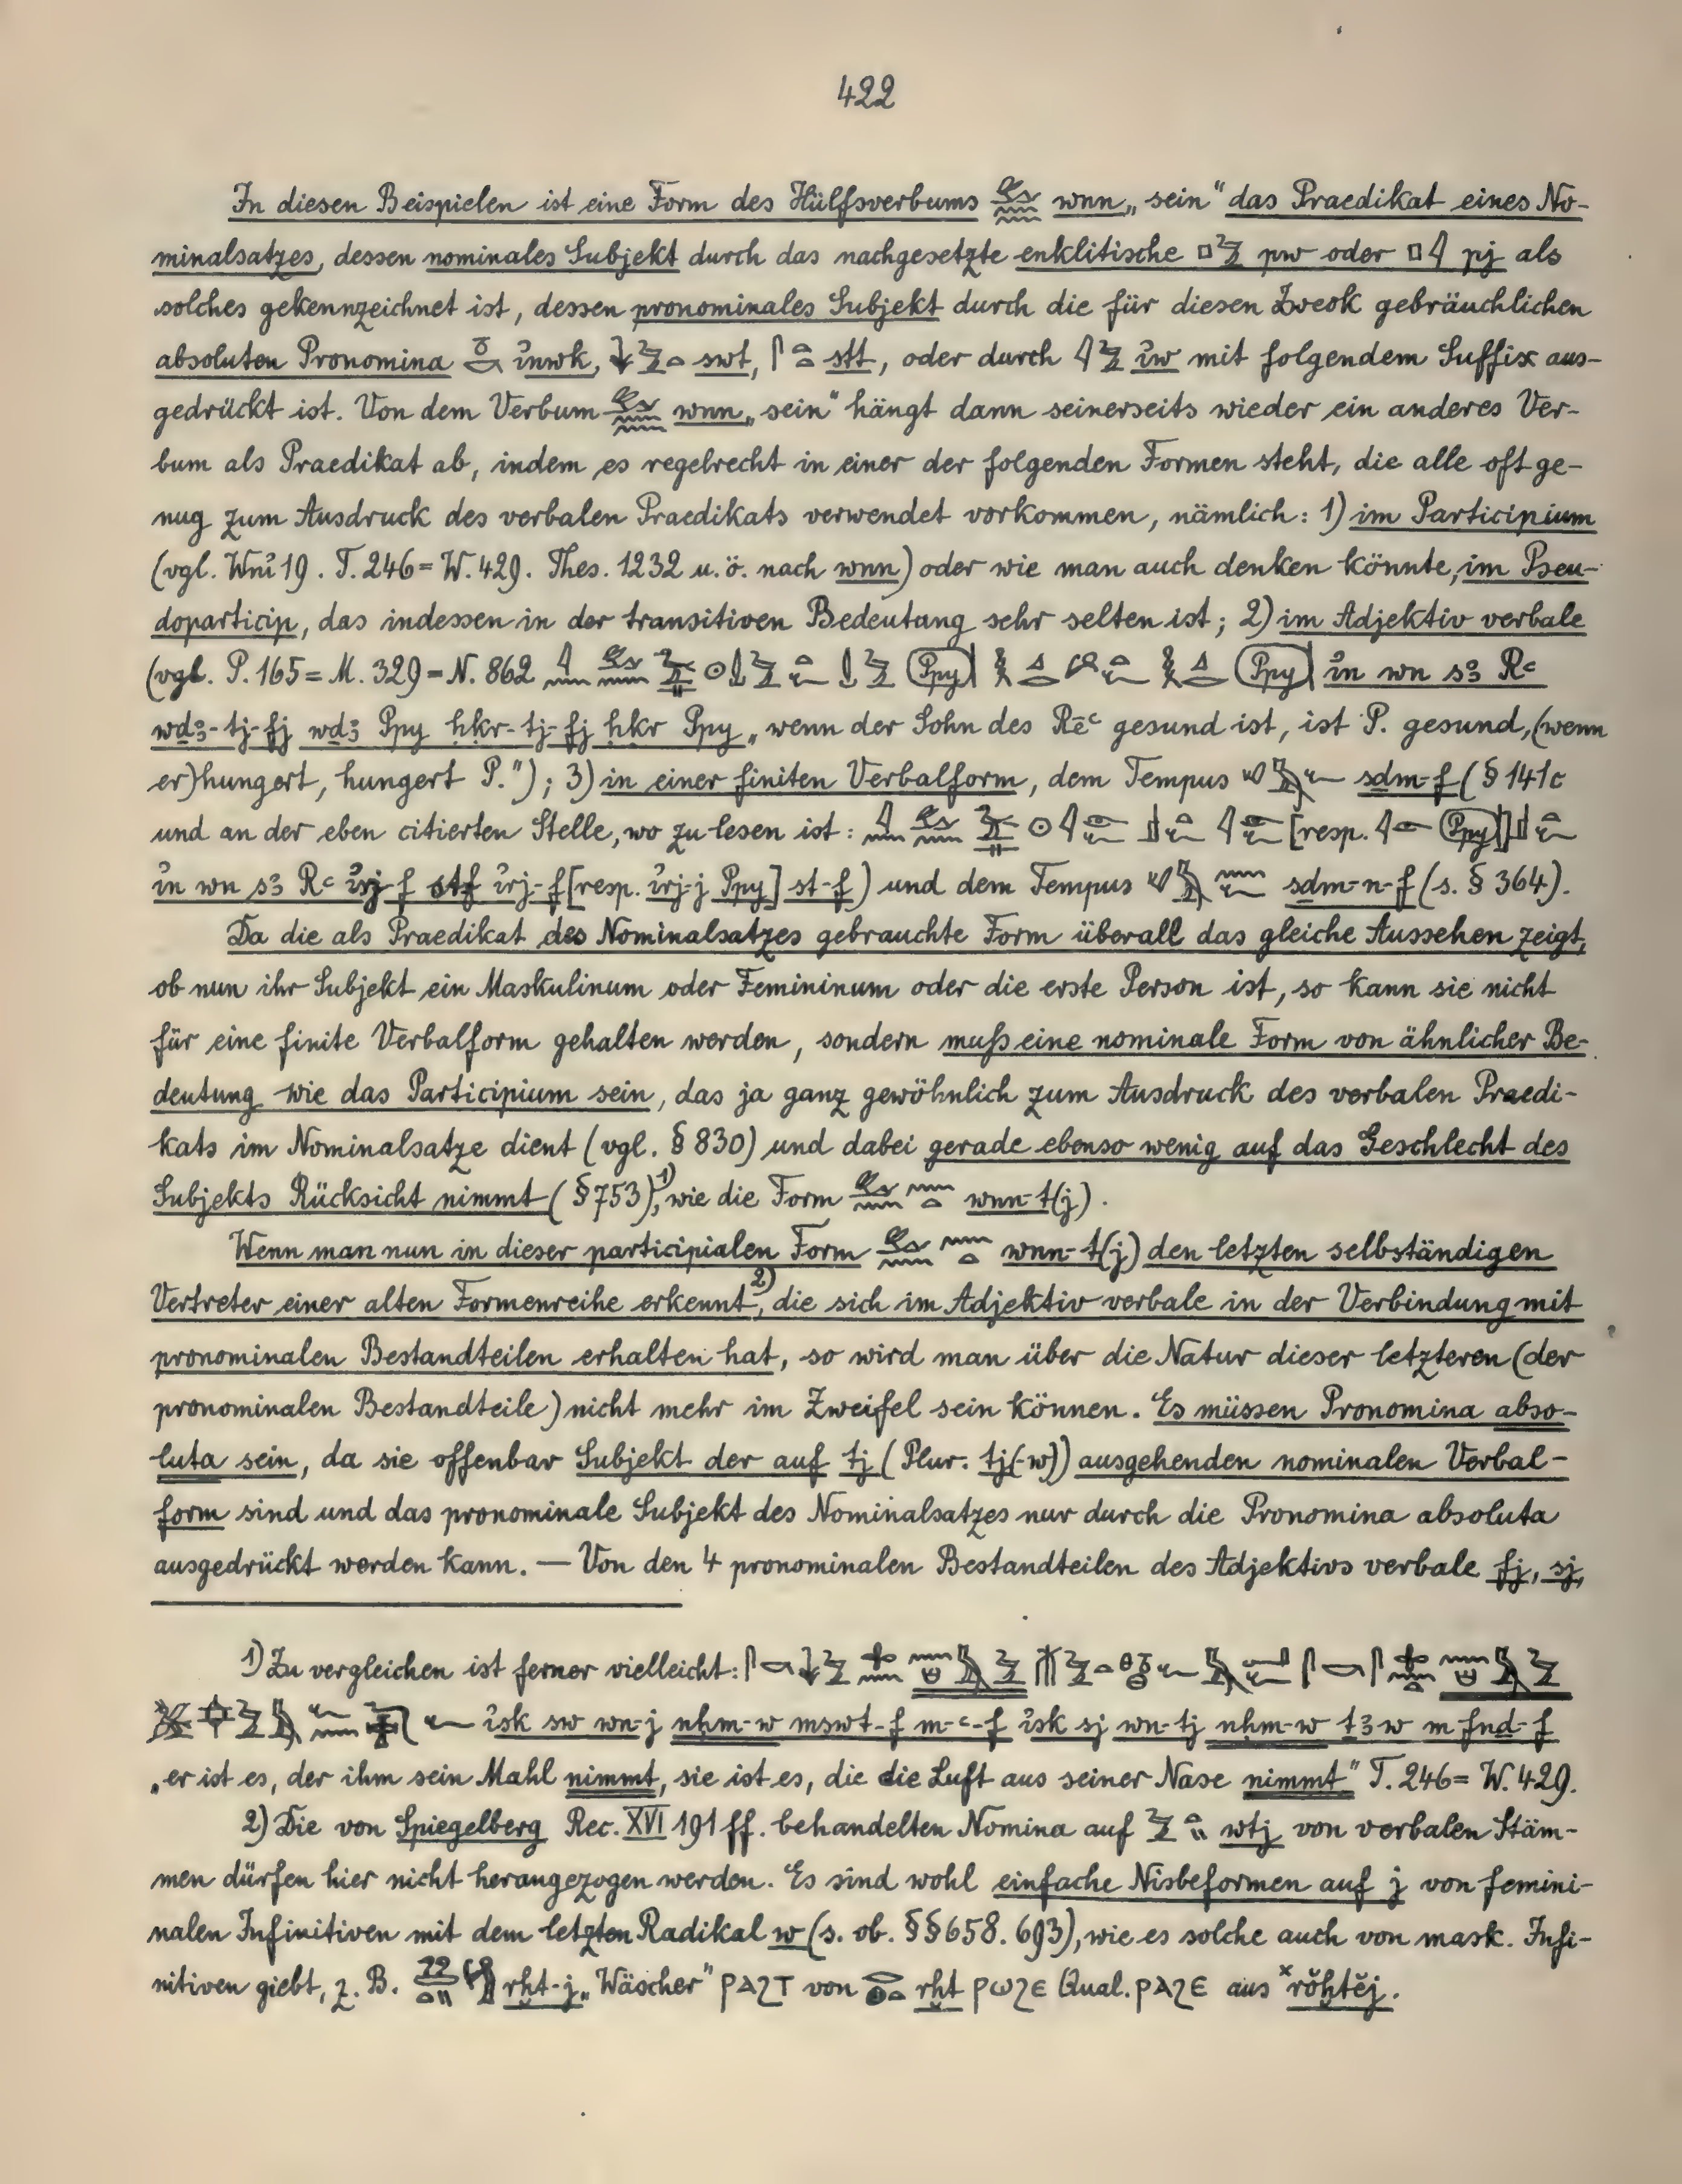 422
In diesen Beispielen ist eine Form des Hülfsverbums wnn „sein“ das Praedikat eines No-
minalsatzes, dessen nominales Subjekt durch das nachgesetzte enklitische pw oder pj als
solches gekennzeichnet ist, dessen pronominales Subjekt durch die für diesen Zweck gebräuchlichen
absoluten Pronomina ỉnwk, swt, stt, oder durch ỉw mit folgendem Suffix aus-
gedrückt ist. Von dem Verbum wnn „sein“ hängt dann seinerseits wieder ein anderes Ver-
bum als Praedikat ab, indem es regelrecht in einer der folgenden Formen steht, die alle oft ge-
nug zum Ausdruck des verbalen Praedikats verwendet vorkommen, nämlich: 1) im Participium
(vgl. Wnỉ 19. T. 246 = W. 429. Thes. 1232 u. ö. nach wnn) oder wie man auch denken könnte, im Pseu-
doparticip, das indessen in der transitiven Bedeutung sehr selten ist; 2) im Adjektiv verbale
(vgl. P. 165 = M. 329 = N. 862 ỉn wn sꜣ Rꜥ
wḏꜣ-tj-fj wḏꜣ Ppy ḥḳr-tj-fj ḥḳr Ppy „wenn der Sohn des Rēꜥ gesund ist, ist P. gesund, (wenn
er) hungert, hungert P.“); 3) in einer finiten Verbalform, dem Tempus sḏm-f (§ 141c
und an der eben citierten Stelle, wo zu lesen ist: [resp. ]
ỉn wn sꜣ Rꜥ ỉrj-f st-f ỉrj-f [resp. ỉrj-j Ppy] st-f) und dem Tempus sḏm-n-f (s. § 364).
Da die als Praedikat des Nominalsatzes gebrauchte Form überall das gleiche Aussehen zeigt,
ob nun ihr Subjekt ein Maskulinum oder Femininum oder die erste Person ist, so kann sie nicht
für eine finite Verbalform gehalten werden, sondern muß eine nominale Form von ähnlicher Be-
deutung wie das Participium sein, das ja ganz gewöhnlich zum Ausdruck des verbalen Praedi-
kats im Nominalsatze dient (vgl. § 830) und dabei gerade ebenso wenig auf das Geschlecht des
Subjekts Rücksicht nimmt (§ 753)1), wie die Form wnn-t(j).
Wenn man nun in dieser participialen Form wnn-t(j) den letzten selbständigen
Vertreter einer alten Formenreihe erkennt2), die sich im Adjektiv verbale in der Verbindung mit
pronominalen Bestandteilen erhalten hat, so wird man über die Natur dieser letzteren (der
pronominalen Bestandteile) nicht mehr im Zweifel sein können. Es müssen Pronomina abso-
luta sein, da sie offenbar Subjekt der auf tj (Plur. tj(-w)) ausgehenden nominalen Verbal-
form sind und das pronominale Subjekt des Nominalsatzes nur durch die Pronomina absoluta
ausgedrückt werden kann. — Von den 4 pronominalen Bestandteilen des Adjektivs verbale fj, sj,
1) Zu vergleichen ist ferner vielleicht:
ỉsk sw wn-j nḥm-w mswt-f m-ꜥ-f ỉsk sj wn-tj nḥm-w ṯꜣw m fnḏ-f
„er ist es, der ihm sein Mahl nimmt, sie ist es, die die Luft aus seiner Nase nimmt“ T. 246 = W. 429.
2) Die von Spiegelberg Rec. XVI 191 ff. behandelten Nomina auf wtj von verbalen Stäm-
men dürfen hier nicht herangezogen werden. Es sind wohl einfache Nisbeformen auf j von femini-
nalen Infinitiven mit dem letzten Radikal w (s. ob. §§ 658. 693), wie es solche auch von mask. Infi-
nitiven giebt, z. B. rḫt-j „Wäscher“ ⲣⲁϩⲧ von rḫt ⲣⲱϩⲉ Qual. ⲣⲁϩⲉ aus ×rŏḫtĕj.